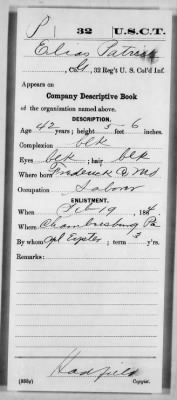 P 32 U.S.C.T.
Elias Patrick
, 32 Reg't U. S. Col'd Inf.
Appears on
Company Descriptive Book
of the organization named above.
DESCRIPTION.
Age 42 years; height 5 feet 6 inches.
Complexion blk
Eyes blk ; hair blk
Where born Frederick Co Md
Occupation Laborer
ENLISTMENT.
When Feb 19 , 1864
Where Chambersburg Pa
By whom Eyster ; term 3 y'rs.
Remarks:
Hadfield
(383g) Copyist.